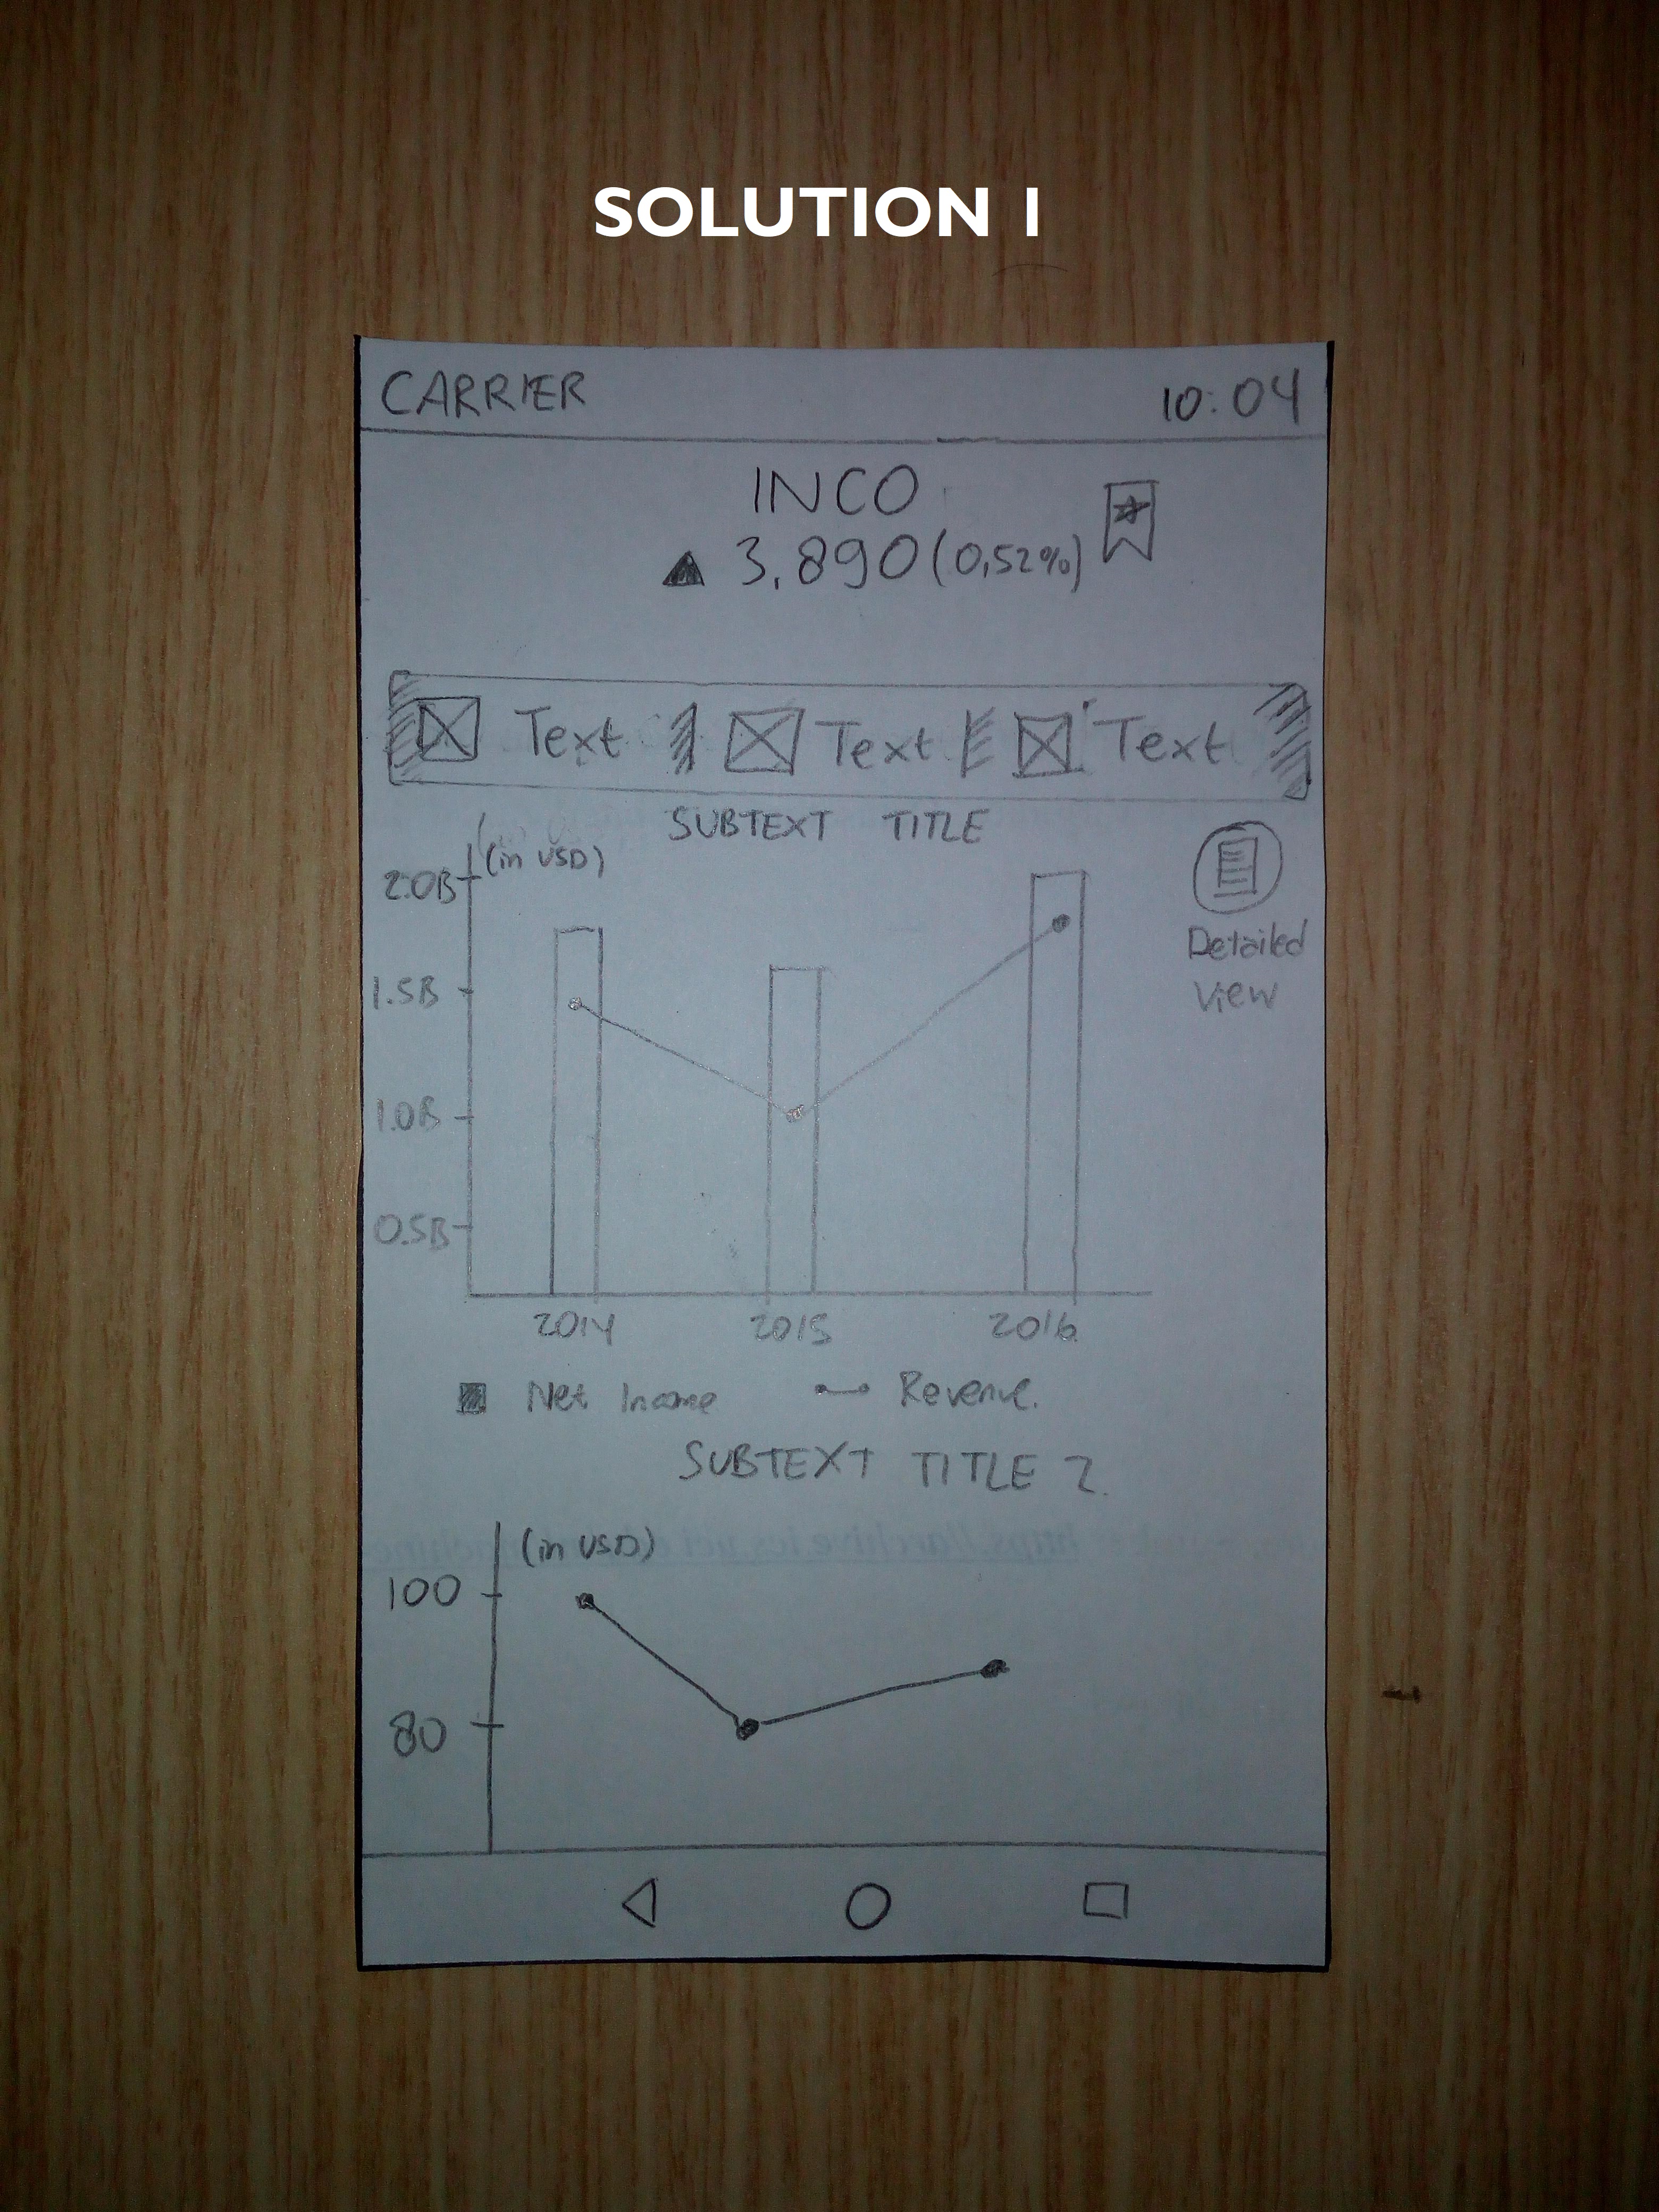 SOLUTION 1
CARRIER 10:04
INCO
▲ 3,890 (0,52%)
Text Text Text
SUBTEXT TITLE
(in USD)
2.0B
1.5B
1.0B
0.5B
Detailed
View
2014 2015 2016
Net Income Revenue.
SUBTEXT TITLE 2.
(in USD)
100
80